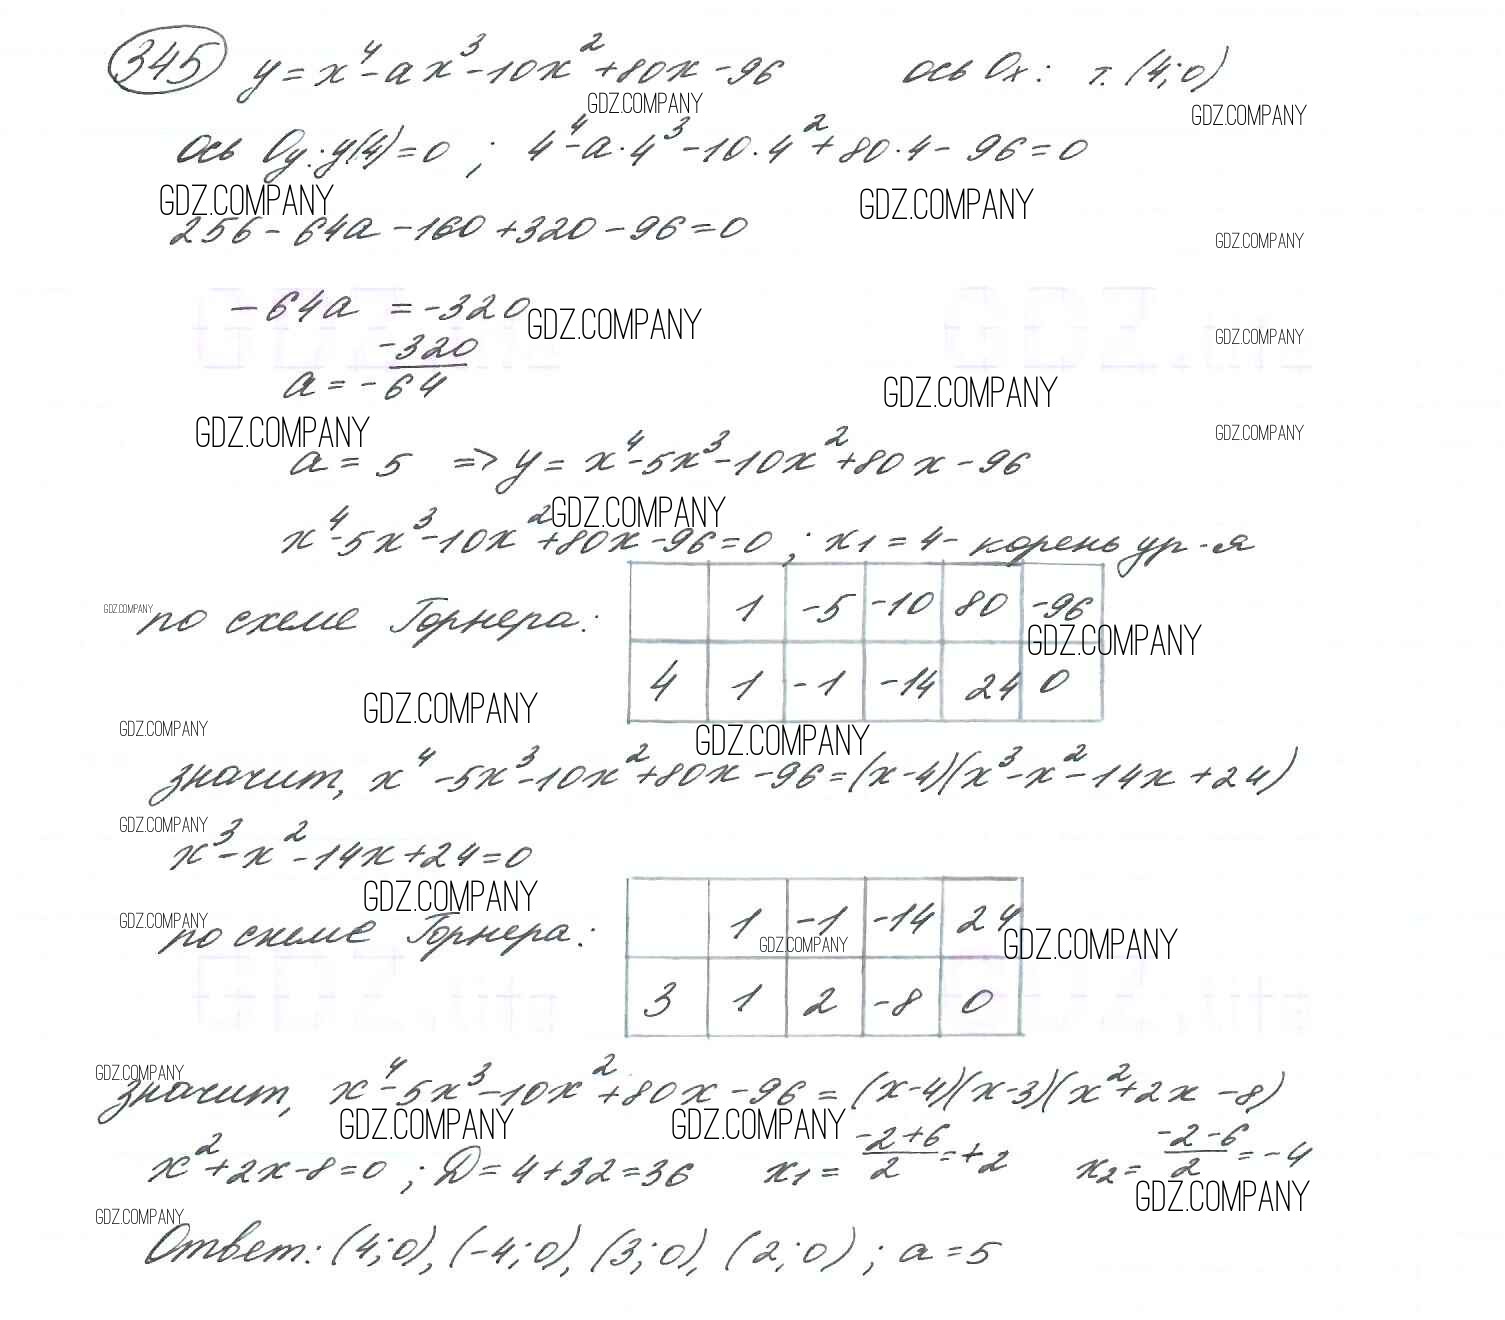 345 y = x⁴ - ax³ - 10x² + 80x - 96 ось Ox: т. (4; 0)
GDZ.COMPANY GDZ.COMPANY
ось Oy: y(4) = 0 ; 4⁴ - a·4³ - 10·4² + 80·4 - 96 = 0
GDZ.COMPANY GDZ.COMPANY
256 - 64a - 160 + 320 - 96 = 0
GDZ.COMPANY
- 64a = -320
GDZ.COMPANY GDZ.COMPANY
a = -320/-64
GDZ.COMPANY
GDZ.COMPANY GDZ.COMPANY
a = 5 => y = x⁴ - 5x³ - 10x² + 80x - 96
GDZ.COMPANY
x⁴ - 5x³ - 10x² + 80x - 96 = 0 ; x₁ = 4 - корень ур-я
GDZ.COMPANY
по схеме Горнера: 1 -5 -10 80 -96
GDZ.COMPANY
4 1 -1 -14 24 0
GDZ.COMPANY
GDZ.COMPANY GDZ.COMPANY
значит, x⁴ - 5x³ - 10x² + 80x - 96 = (x - 4)(x³ - x² - 14x + 24)
GDZ.COMPANY
x³ - x² - 14x + 24 = 0
GDZ.COMPANY
GDZ.COMPANY
по схеме Горнера: 1 -1 -14 24
GDZ.COMPANY GDZ.COMPANY
3 1 2 -8 0
GDZ.COMPANY
значит, x⁴ - 5x³ - 10x² + 80x - 96 = (x - 4)(x - 3)(x² + 2x - 8)
GDZ.COMPANY GDZ.COMPANY
x² + 2x - 8 = 0 ; D = 4 + 32 = 36 x₁ = (-2+6)/2 = +2 x₂ = (-2-6)/2 = -4
GDZ.COMPANY
GDZ.COMPANY
Ответ: (4; 0), (-4; 0), (3; 0), (2; 0) ; a = 5